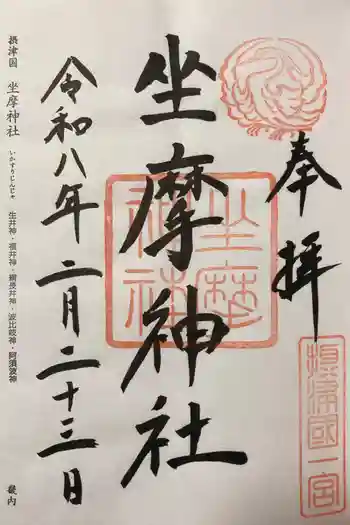 奉拝
摂津國一宮
坐摩神社
坐摩神社
令和八年二月二十三日
摂津国 坐摩神社 いかすりじんじゃ 生井神・福井神・綱長井神・波比岐神・阿須波神 畿内